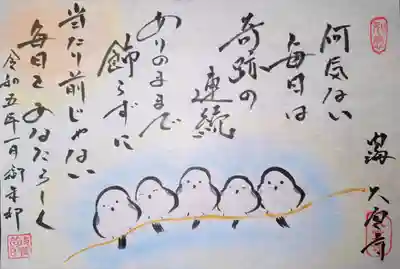 何気ない
毎日は
奇跡の
連続
ありのままで
飾らずに
当たり前じゃない
毎日をあなたらしく
令和五年一月
大雲寺